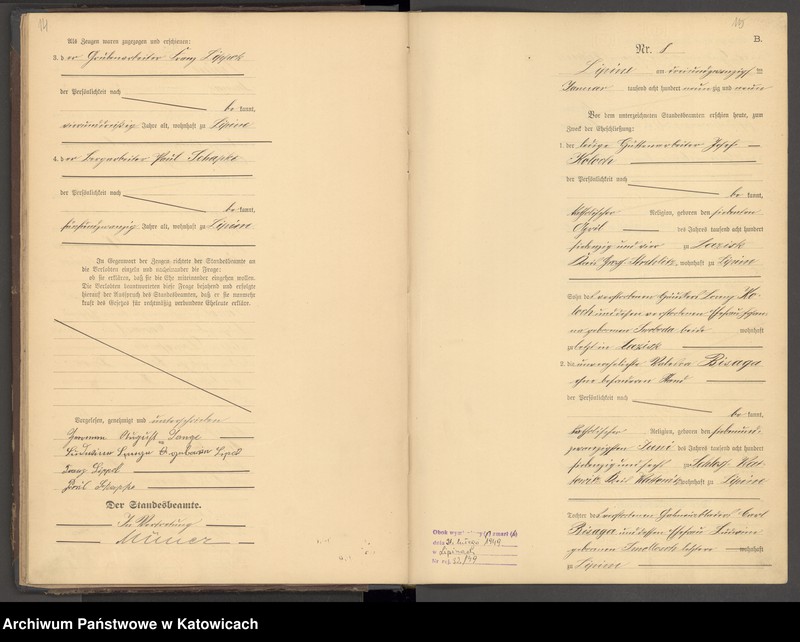 14
Als Zeugen waren zugezogen und erschienen:
3. der Grubenarbeiter Franz Lippok
der Persönlichkeit nach
bekannt,
vierunddreißig Jahre alt, wohnhaft zu Lipine
4. der Bergarbeiter Paul Schapke
der Persönlichkeit nach
bekannt,
fünfundzwanzig Jahre alt, wohnhaft zu Lipine
In Gegenwart der Zeugen richtete der Standesbeamte an
die Verlobten einzeln und nacheinander die Frage:
ob sie erklären, daß sie die Ehe miteinander eingehen wollen.
Die Verlobten beantworteten diese Frage bejahend und erfolgte
hierauf der Ausspruch des Standesbeamten, daß er sie nunmehr
kraft des Gesetzes für rechtmäßig verbundene Eheleute erkläre.
Vorgelesen, genehmigt und unterschrieben
August Lange
Lange geborene
Franz
Paul Schapke
Der Standesbeamte.
In Vertretung
15
B.
Nr. 8
Lipine am dreiundzwanzigsten
Januar tausend acht hundert neunzig und neun
Vor dem unterzeichneten Standesbeamten erschien heute, zum
Zweck der Eheschließung:
1. der ledige Hüttenarbeiter Josef
Koloch
der Persönlichkeit nach
bekannt,
katholischer Religion, geboren den siebenten
April des Jahres tausend acht hundert
siebenzig und vier zu Lazisk
Kreis Groß Strehlitz, wohnhaft zu Lipine
Sohn des verstorbenen Häuslers Franz Ko-
loch und dessen verstorbenen Ehefrau
geborenen Swoboda beide wohnhaft
zuletzt in Lazisk
2. die unverehelichte Valeska Bisaga
ohne besonderen Stand
der Persönlichkeit nach
bekannt,
katholischer Religion, geboren den siebenund-
zwanzigsten Juni des Jahres tausend acht hundert
siebenzig und sechs zu Schloß Kat-
towitz Kreis Kattowitz wohnhaft zu Lipine
Tochter des verstorbenen Carl
Bisaga und dessen Ehefrau
geborenen letztere wohnhaft
zu Lipine
Obok zmarł(a)
dnia 21. lutego 1949
w Lipinach
Nr rej. 52/49
Archiwum Państwowe w Katowicach